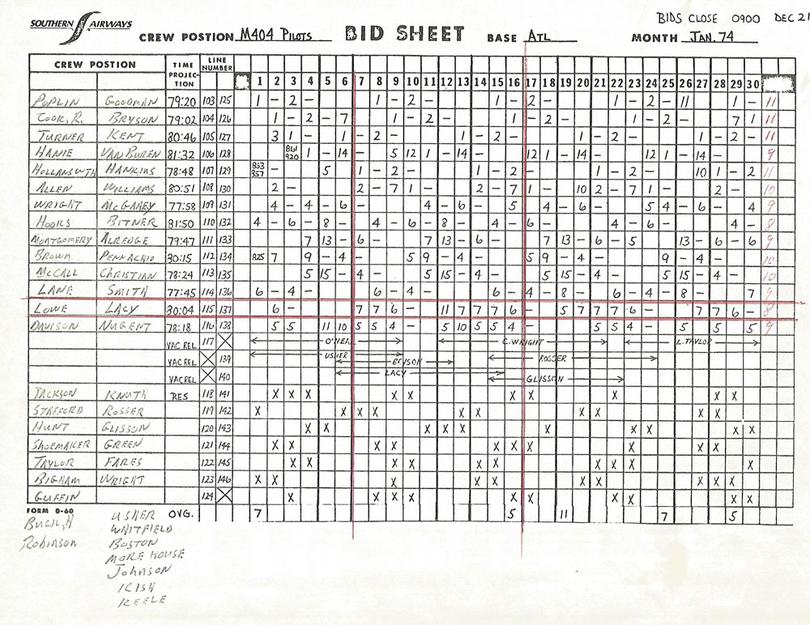 SOUTHERN AIRWAYS
BIDS CLOSE 0900 DEC 21
CREW POSTION M404 PILOTS BID SHEET BASE ATL MONTH JAN. 74
CREW POSTION TIME PROJEC- TION LINE NUMBER 1 2 3 4 5 6 7 8 9 10 11 12 13 14 15 16 17 18 19 20 21 22 23 24 25 26 27 28 29 30
POPLIN GOODMAN 79:20 103 125 1 - 2 - 1 - 2 - 1 - 2 1 - 2 - 11 1 - 11
COOK, R. BRYSON 79:02 104 126 1 - 2 - 7 1 - 2 1 - 2 1 - 2 7 1 11
TURNER KENT 80:46 105 127 3 1 - 1 - 2 1 - 2 1 - 2 1 - 2 - 11
HANIE VAN BUREN 81:32 106 128 861 920 1 - 14 5 12 1 - 14 12 1 - 14 12 1 - 14 - 9
HOLLANSWTH HANKINS 78:48 107 129 853 857 5 1 - 2 1 - 2 1 - 2 10 1 - 2 11
ALLEN WILLIAMS 80:51 108 130 2 - 2 - 7 1 2 - 7 1 - 10 2 - 2 - 7 1 2 - 10
WRIGHT McGAHEY 77:58 109 131 4 - 4 - 6 4 - 6 5 4 - 6 5 4 - 6 - 4 9
HOOKS BITNER 81:50 110 132 4 - 6 - 8 - 4 - 6 - 8 - 4 - 6 4 - 6 4 - 8
MONTGOMERY ALRENGE 79:47 111 133 7 13 - 6 - 7 13 - 6 - 7 13 - 6 - 5 13 - 6 - 6 9
BROWN PENNACHIO 80:15 112 134 825 7 9 - 4 - 5 9 - 4 - 5 9 - 4 - 9 - 4 10
McCALL CHRISTIAN 78:24 113 135 5 15 - 4 - 5 15 - 4 - 5 15 - 4 - 5 15 - 4 - 10
LANE SMITH 77:45 114 136 6 - 4 - 6 - 4 - 6 - 4 - 8 6 - 4 - 8 - 7 9
LOWE LACY 80:04 115 137 6 - 7 7 6 - 11 7 7 7 6 - 5 7 7 7 6 - 7 7 6 - 8
DAVISON NUGENT 78:18 116 138 5 5 11 10 5 5 4 - 5 10 5 5 4 - 5 5 4 - 5 5 5 9
VAC REL 117 O'NER C. WRIGHT L. TAYLOR
VAC REL 139 USHER BRYSON ROSSER
VAC REL 140 LACY GLISSON
JACKSON KNUTH RES 118 141 X X X X X X X X X X X
STAFFORD ROSSER 119 142 X X X X X X X X X X
HUNT GLISSON 120 143 X X X X X X X X X X
SHOEMAKER GREEN 121 144 X X X X X X X X X X
TAYLOR FARES 122 145 X X X X X X X X X X X
BIGHAM WRIGHT 123 146 X X X X X X X X X X
GUFFIN 124 X X X X X X X X X X
FORM 0-60 USHER OVG. 7 5 11 7 5
BUCH, H WHITFIELD
Robinson BOSTON
MORE HOUSE
Johnson
KISH
KEELE